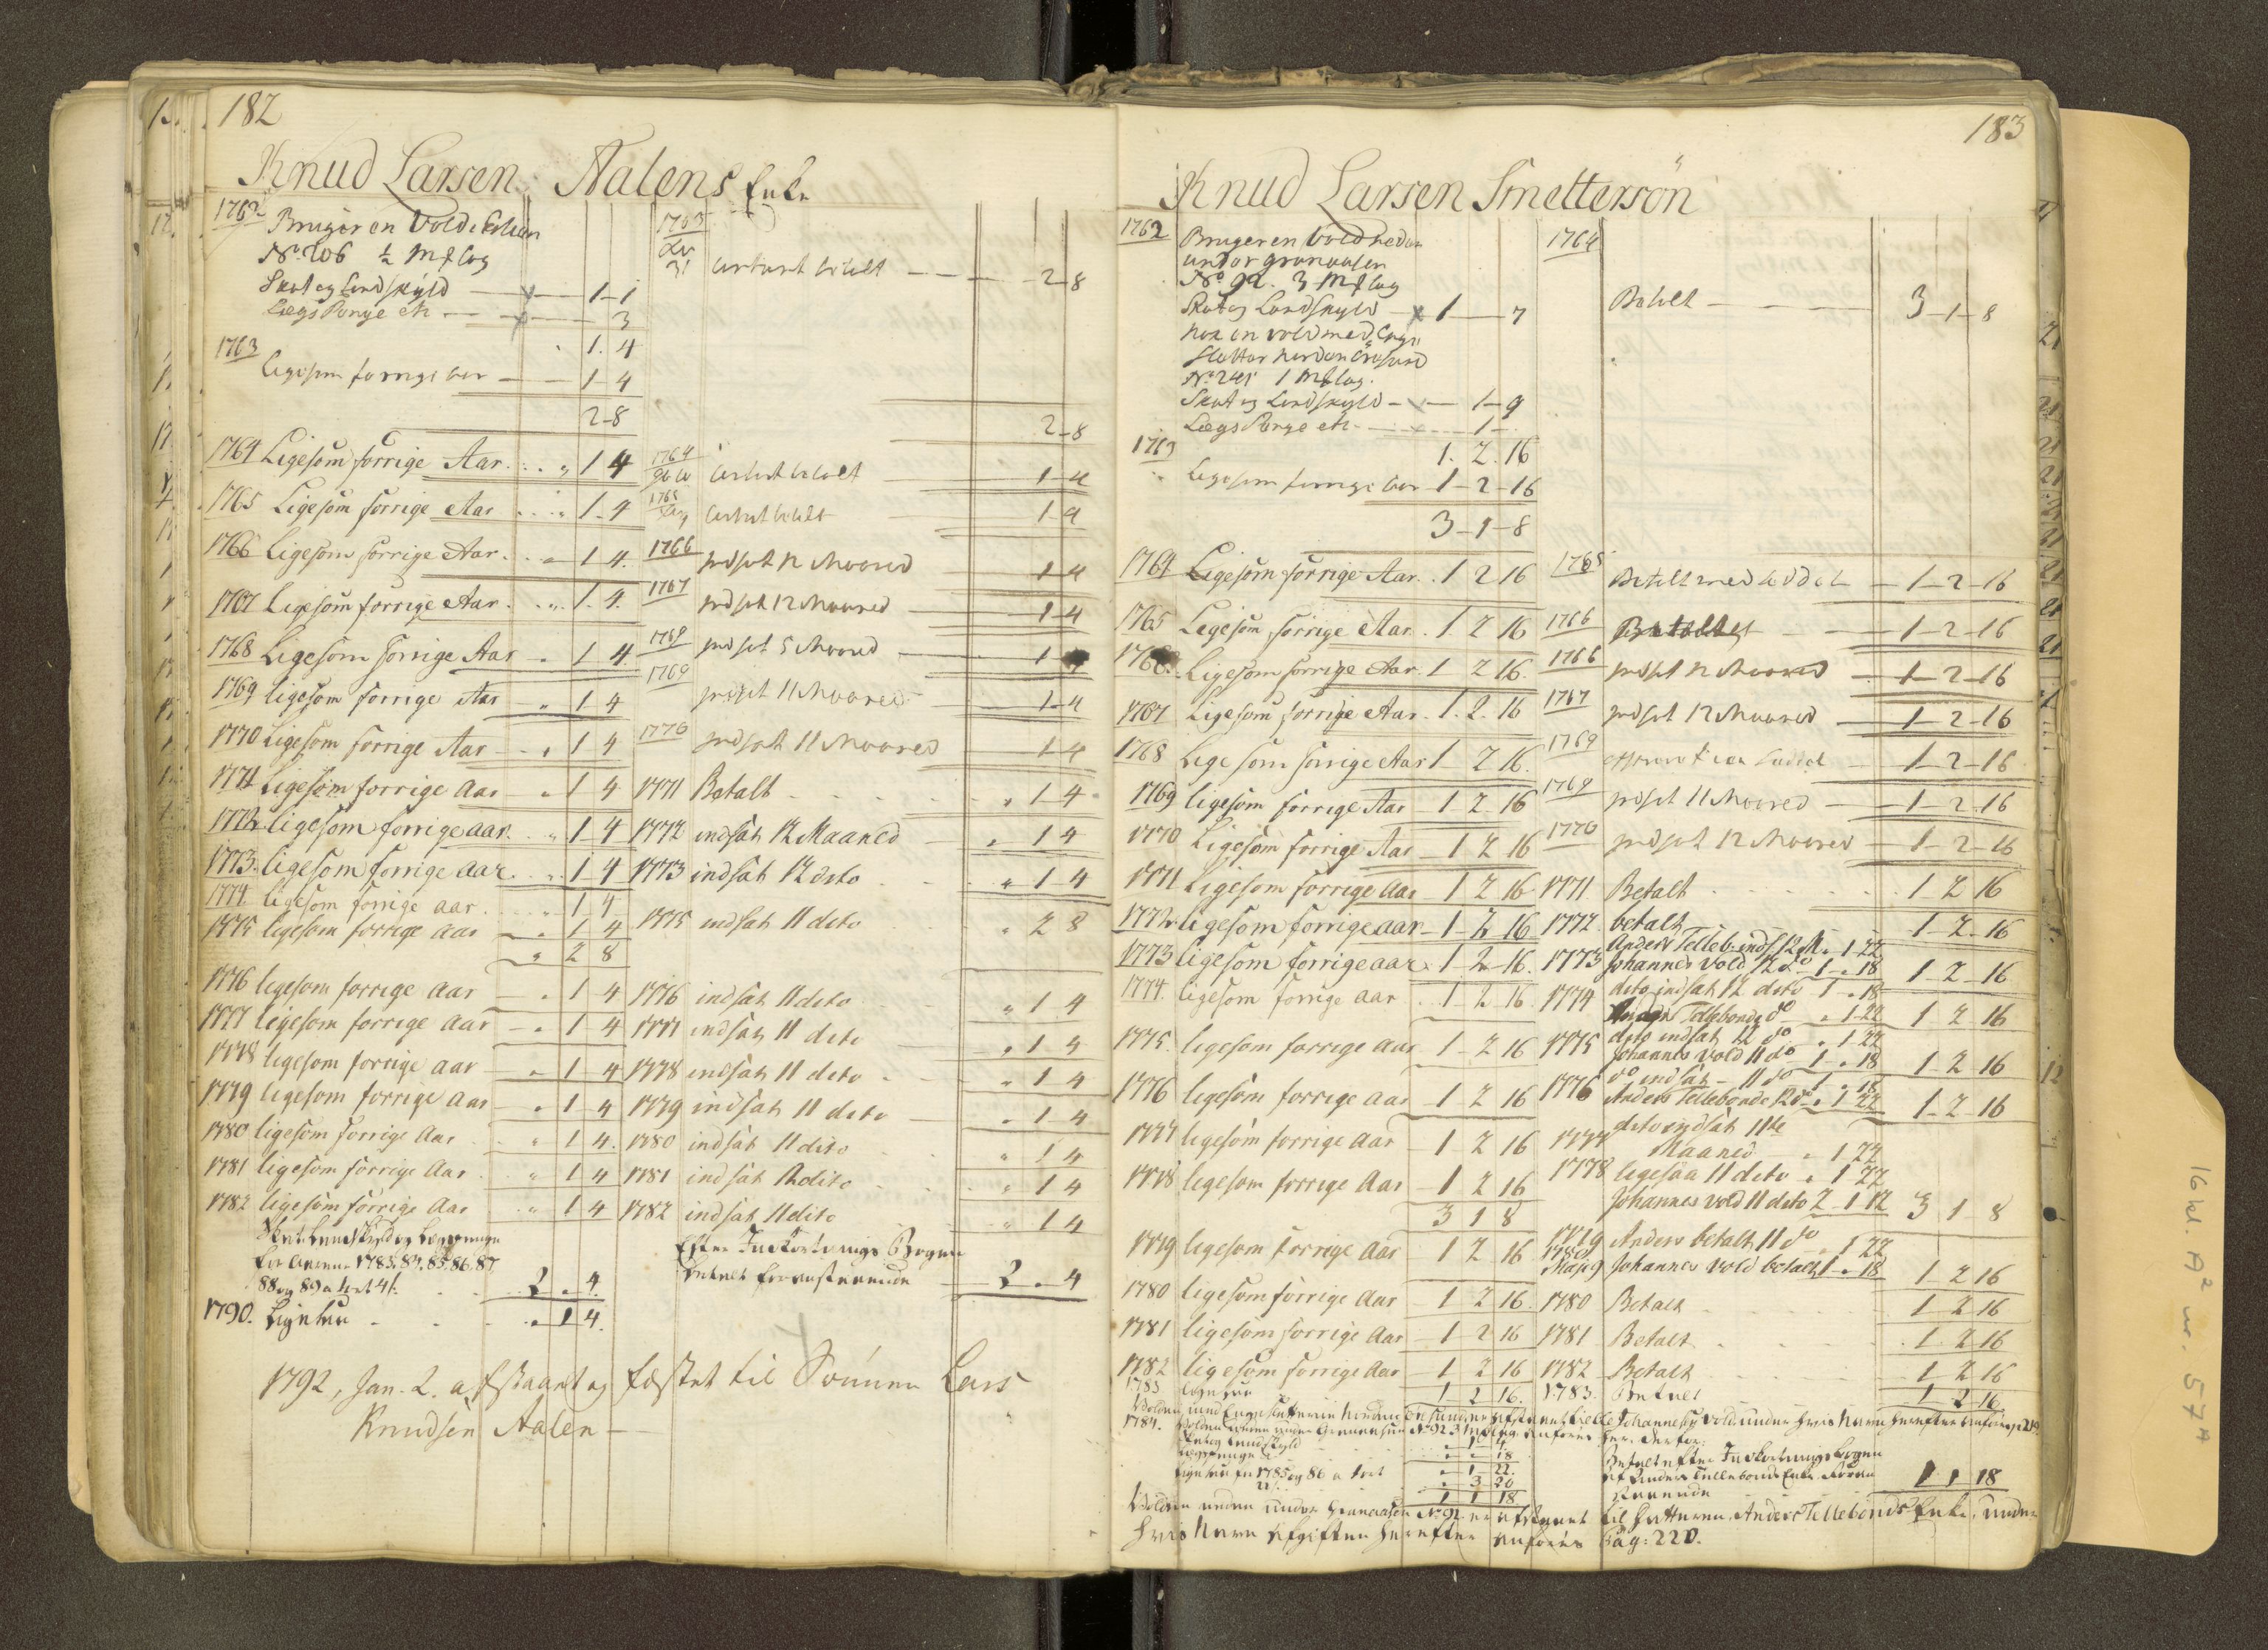 182
Knud Larsen Aalens Enke
1762 Bruger en Vold
No. 206 ½ Mæ
Skat og Landskyld 1-1
Lægs Penge etc 3
1.4
1763
Ligesom forrige Aar 1-4
2-8
1764 Ligesom forrige Aar 1 4
1765 Ligesom forrige Aar 1.4
1766 Ligesom forrige Aar 1 4.
1767 Ligesom forrige Aar 1.4.
1768 Ligesom forrige Aar 1 4
1769 ligesom forrige Aar 1 4
1770 Ligesom forrige Aar 1 4
1771 Ligesom forrige Aar 1 4
1772 ligesom forrige aar 1-4
1773. ligesom forrige aar 1-4
1774. ligesom forrige aar 1 4
1775 ligesom forrige Aar 1 4
2 8
1776 ligesom forrige Aar 1 4
1777 ligesom forrige Aar 1 4
1778 ligesom forrige Aar 1 4
1779 ligesom forrige Aar 1 4
1780 ligesom forrige Aar 1 4.
1781 ligesom forrige Aar 1 4
1782 ligesom forrige Aar 1 4
Skat Landskyld og Lægspenge
for Aarene 1783. 84. 85. 86. 87
88 og 89 2 4.
1790. Ligesaa 1 4.
1763
31 betalt 2-8
2-8
1764 betalt 1-4
1765 betalt 1-4
1766 indsat 12 Maaned 1-4
1767 indsat 12 Maaned 1-4
1769 indsat 5 Maaned 1
1769 indsat 11 Maaned 1-4
1770 indsat 11 Maaned 1-4
1771 Betalt 1-4
1772 indsat 12 Maaned 1 4
1773 indsat 12 dito 1-4
1775 indsat 11 dito 2 8
1776 indsat 11 dito 1 4
1777 indsat 11 dito 1 4
1778 indsat 11 dito 1 4
1779 indsat 11 dito 1 4
1780 indsat 11 dito 1 4
1781 indsat 12 dito 1 4
1782 indsat 11 dito 1 4
Efter Bogen
Betalt foranstaaende 2 4
1792, Jan. 2. afstaaet og fæstet til Sønnen Lars
Knudsen Aalen
183
Knud Larsen Smettersøn
1762 Bruger en Vold neden
under Granaasen
No 92. 3 Mæ
Skat og Landskyld 1 7
nok en vold med Enge
Slotter norden
No 241 1 Mæ
Skat og Landskyld 1-9
Lægs Penge etc 1
1. 2. 16
1763
Ligesom forrige Aar 1-2-16
3-1-8
1764 Ligesom forrige Aar 1 2 16
1765 Ligesom forrige Aar 1. 2 16
1766. Ligesom forrige Aar 1 2 16.
1767 Ligesom forrige Aar 1. 2. 16
1768 Lige som forrige Aar 1 2 16.
1769 ligesom forrige Aar 1 2 16
1770 Ligesom forrige Aar 1 2 16
1771 Ligesom forrige Aar 1 2 16
1772 ligesom forrige aar 1-2-16
1773 ligesom forrige aar 1-2-16.
1774. ligesom forrige aar 1-2 16.
1775. ligesom forrige Aar 1-2 16
1776 ligesom forrige Aar 1 2 16
1777 ligesom forrige Aar 1 2 16
1778 ligesom forrige Aar 1 2 16
3 1 8
1779 ligesom forrige Aar 1 2 16
1780 ligesom forrige Aar 1 2 16.
1781 ligesom forrige Aar 1-2 16
1782 ligesom forrige Aar 1 2 16
1783 ligesaa 1 2 16.
1764
Betalt 3-1-8
1765 Betalt med 1-2-16
1766 Betalt 1-2-16
1766 indsat 12 Maaned 1-2-16
1767 indsat 12 Maaned 1-2-16
1769 1-2-16
1769 indsat 11 Maaned 1-2-16
1770 indsat 12 Maaned 1-2-16
1771. Betalt 1 2 16
1772. betalt 1-2-16
1773 Anders Telleb: inds. 12 M. 1-22
Johannes Vold 12 do 1 18 1 2 16
1774 dito indsat 12 dito 1 18
Anders Tellebonde do 1-22 1 2 16
1775 dito indsat 12 do 1-22
Johannes Vold 11 do 1 18 1 2 16
1776 do indsat 11 do 1 18
Anders Tellebonde 12 do 1 22 1-2-16
1777 dito indsat 11te
Maaned 1 22
1778 ligesaa 11 dito 1 22
Johannes Vold 11 dito 2-1 12 3 1 8
1779 Anders betalt 11 do 1 22
1780 Maj 9 Johannes Vold betalt 1 18 1 2 16
1780 Betalt 1 2 16
1781 Betalt 1 2 16
1782 Betalt 1 2 16
1783. Betalt 1 2 16.
Volden med Enge Slotterne Norden er afstaaet til Johannes Vold under hvis Navn herefter anføres p 219.
1784. Volden neden under Granaasen No 92 3 anføres her. derfor:
Skat og Landskyld 1 4.
Lægspenge 18
1 22.
Ligesaa for 1785 og 86 a 3 20
1 1 18
Betalt efter
af Anders Tellebonds Enke foran
staaende 1 1 18
Volden neden under Granaasen No 92 er afstaaet til Anders Tellebonds Enke, under
hvis Navn Afgiften herefter anføres Pag: 220.
16 kl. A² nr. 57A